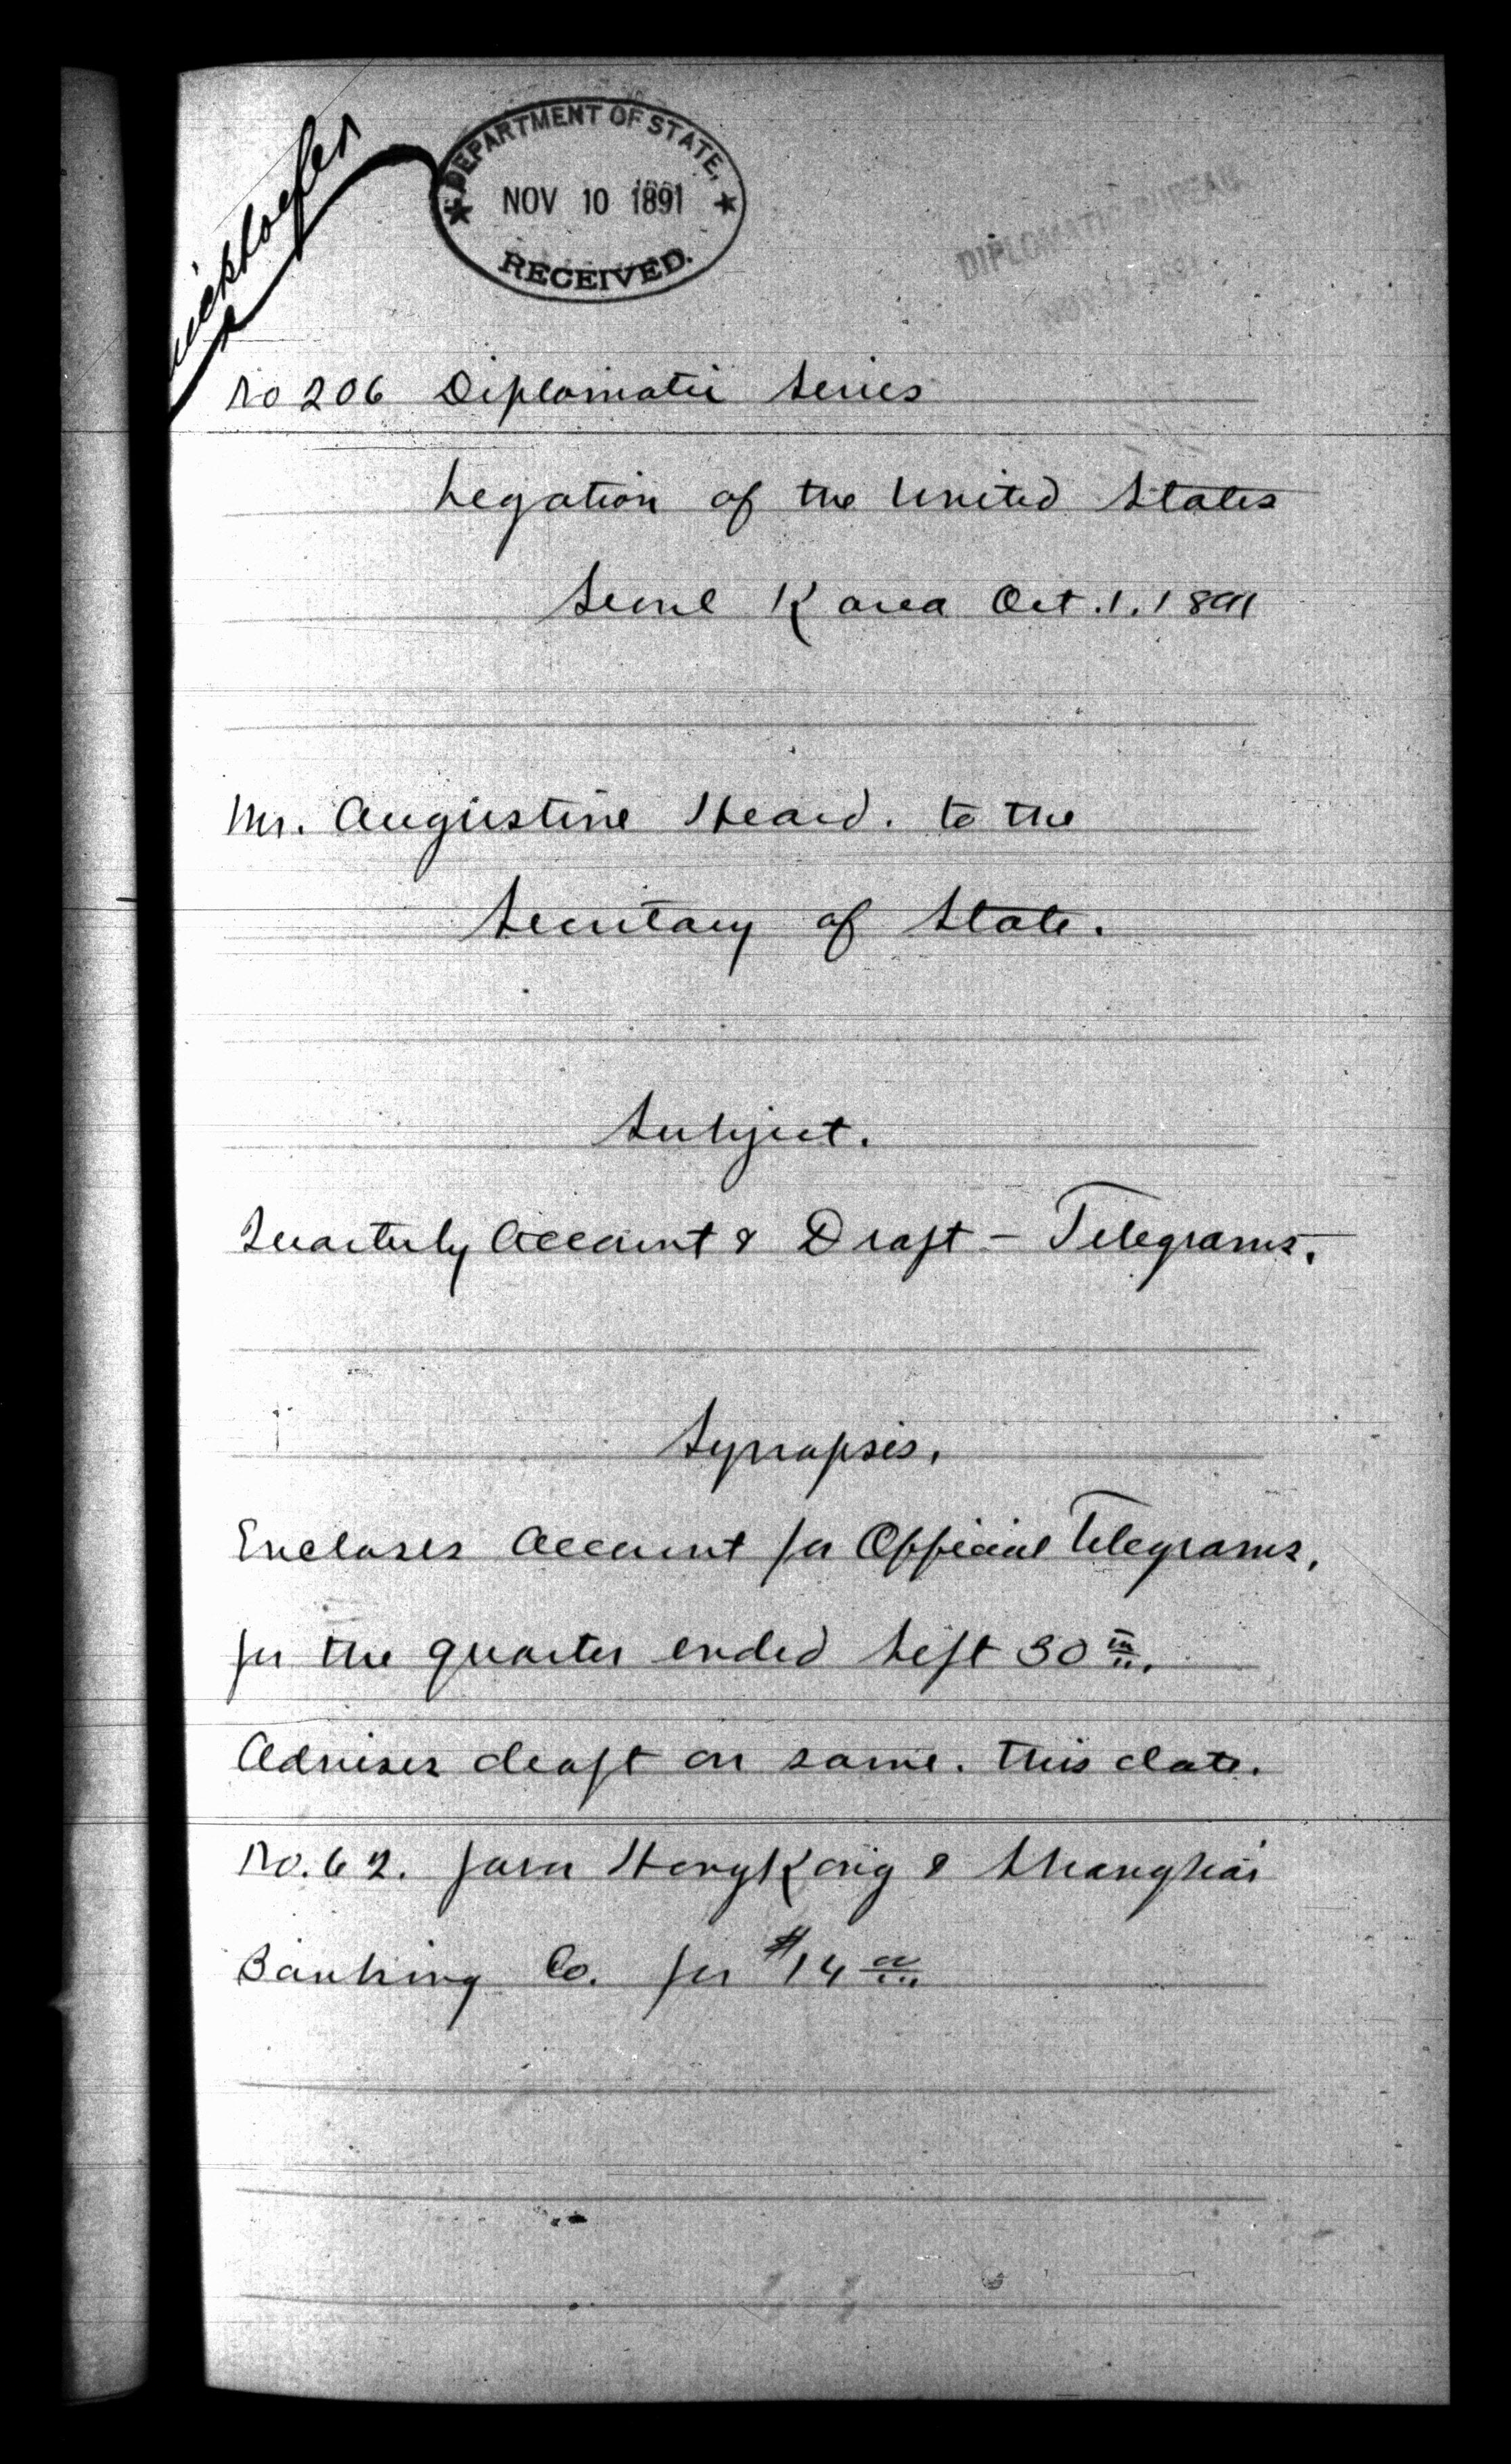 DEPARTMENT OF STATE,
NOV 10 1891
RECEIVED.
DIPLOMATIC BUREAU
No 206 Diplomatic Series
Legation of the United States
Seoul Korea Oct. 1. 1891
Mr. Augustine Heard. to the
Secretary of State.
Subject.
Quarterly Account & Draft - Telegrams.
Synopsis.
Encloses Account for Official Telegrams,
for the quarter ended Sept 30th.
Advises draft on same. this date.
No. 62. favor HongKong & Shanghai
Banking Co. for $14 00